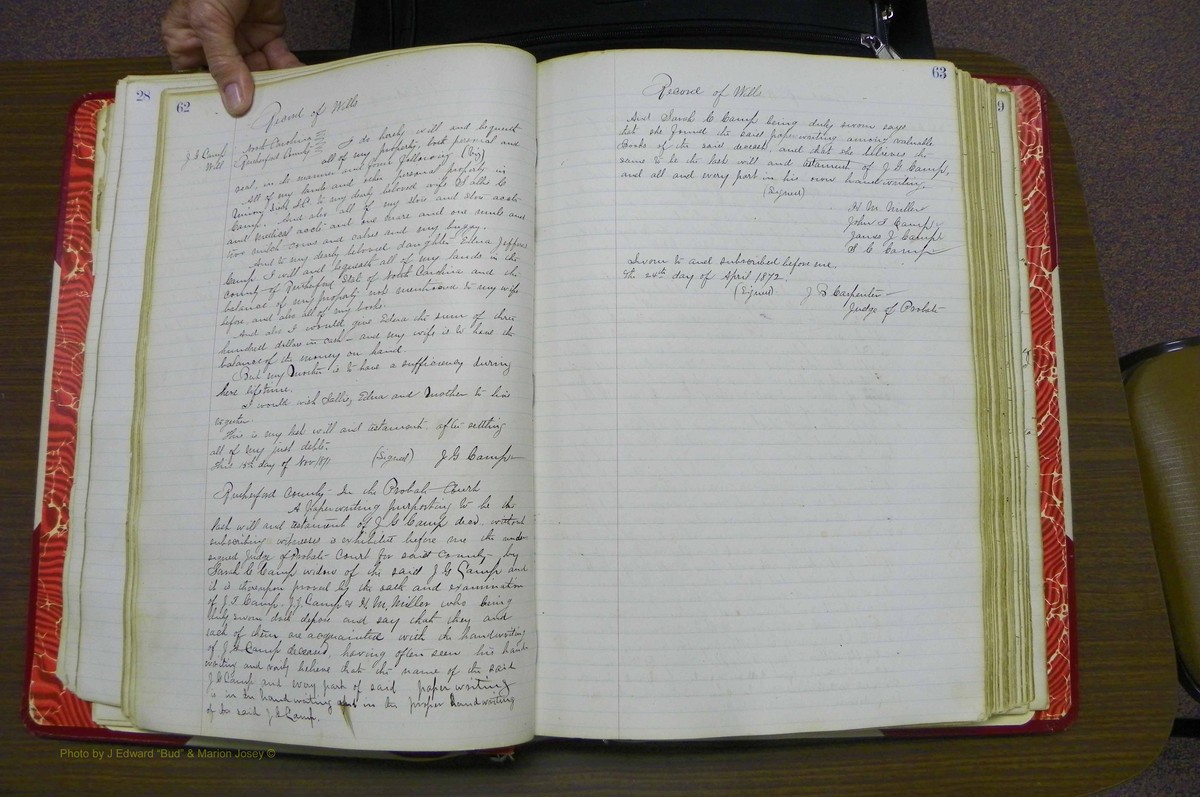 28
62
Record of Wills
J G Camp
Will
North Carolina
Rutherford County
I do hereby will and bequeath
all of my property, both personal and
real, in the manner and form following (viz)
All of my lands and other personal property in
to my dearly beloved wife Sallie C
Camp. And also all of my store and store accts
and medical accts and one mare and one mule and
two milch cows and calves and my buggy.
And to my dearly beloved daughter Edna
Camp I will and bequeath all of my lands in the
county of Rutherford State of North Carolina and the
balance of my property not mentioned to my wife
before and also all of my books.
And also I would give Edna the sum of three
hundred dollars in cash – and my wife is to have the
balance of the money on hand.
But my Mother is to have a sufficiency during
here lifetime.
I would wish Sallie, Edna and Mother to live
together
This is my last will and testament. after settling
all of my just debts.
This 18th day of Nov 1871
(Signed) J G Camp
Rutherford County – In the Probate Court
A paper writing purporting to be the
last will and testament of J G Camp decd. without
subscribing witnesses is exhibited before me the under
signed Judge of Probate Court for said County – by
Sarah C Camp widow of the said J G Camp and
it is thereupon proved by the oath and examination
of J. F. Camp, J. J. Camp & H M. Miller who being
duly sworn doth depose and say that they and
each of them are acquainted with the handwriting
of J. G. Camp deceased having often seen his hand
writing and verily believe that the name of the said
J G Camp and every part of said paper writing
is in the handwriting and in the proper handwriting
of the said J. G. Camp.
63
9
Record of Wills
And Sarah C Camp being duly sworn says
that she found the said paper writing among valuable
Books of the said deceased and that she believes the
same to be the last will and testament of J G Camp,
and all and every part in his own handwriting.
(Signed)
H M. Miller
John F Camp
James J Camp
S C Camp
Sworn to and subscribed before me.
the 24th day of April 1872.
(Signed) J B Carpenter
Judge of Probate
Photo by J Edward "Bud" & Marion Josey ©